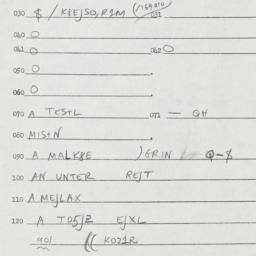 030 $ / K8EJSO,R2M 031
040 O
041 O 042 O
050 O
060 O
070 A TESTL 071 — QH
080 MISTN
090 A MALK8E )GRIN Q-$
100 AN UNTER REJT
110 A MEJLAX
120 A TO5JZ EJXL
901 (( KO21R